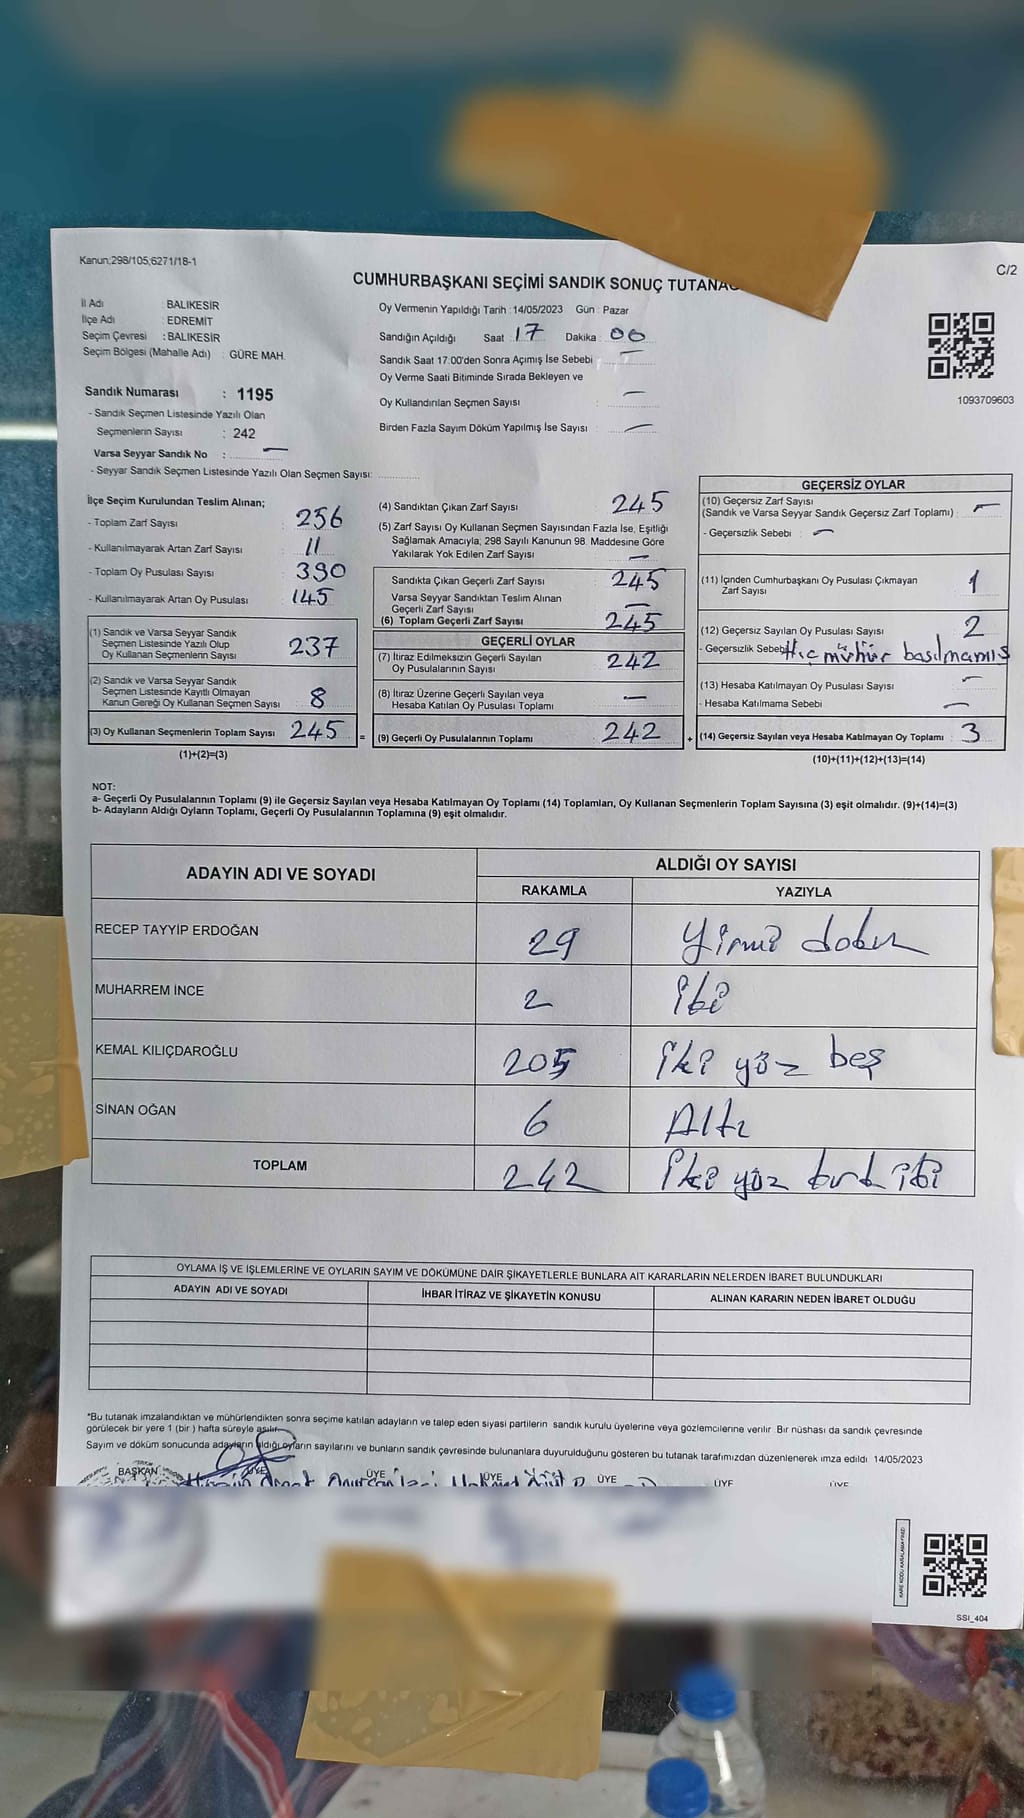 Kanun;298/105;6271/18-1
C/2
CUMHURBAŞKANI SEÇİMİ SANDIK SONUÇ TUTANA
İl Adı : BALIKESİR
İlçe Adı : EDREMİT
Seçim Çevresi : BALIKESİR
Seçim Bölgesi (Mahalle Adı) : GÜRE MAH.
Sandık Numarası : 1195
- Sandık Seçmen Listesinde Yazılı Olan
Seçmenlerin Sayısı : 242
Varsa Seyyar Sandık No : —
- Seyyar Sandık Seçmen Listesinde Yazılı Olan Seçmen Sayısı:
Oy Vermenin Yapıldığı Tarih : 14/05/2023 Gün : Pazar
Sandığın Açıldığı Saat : 17 Dakika : 00
Sandık Saat 17:00'den Sonra Açımış İse Sebebi : —
Oy Verme Saati Bitiminde Sırada Bekleyen ve
Oy Kullandırılan Seçmen Sayısı : —
Birden Fazla Sayım Döküm Yapılmış İse Sayısı : —
1093709603
İlçe Seçim Kurulundan Teslim Alınan;
- Toplam Zarf Sayısı : 256
- Kullanılmayarak Artan Zarf Sayısı : 11
- Toplam Oy Pusulası Sayısı : 390
- Kullanılmayarak Artan Oy Pusulası : 145
(1) Sandık ve Varsa Seyyar Sandık
Seçmen Listesinde Yazılı Olup
Oy Kullanan Seçmenlerin Sayısı : 237
(2) Sandık ve Varsa Seyyar Sandık
Seçmen Listesinde Kayıtlı Olmayan
Kanun Gereği Oy Kullanan Seçmen Sayısı : 8
(3) Oy Kullanan Seçmenlerin Toplam Sayısı : 245
(1)+(2)=(3)
(4) Sandıktan Çıkan Zarf Sayısı : 245
(5) Zarf Sayısı Oy Kullanan Seçmen Sayısından Fazla İse, Eşitliği
Sağlamak Amacıyla; 298 Sayılı Kanunun 98. Maddesine Göre
Yakılarak Yok Edilen Zarf Sayısı : —
Sandıkta Çıkan Geçerli Zarf Sayısı : 245
Varsa Seyyar Sandıktan Teslim Alınan
Geçerli Zarf Sayısı : —
(6) Toplam Geçerli Zarf Sayısı : 245
GEÇERLİ OYLAR
(7) İtiraz Edilmeksizin Geçerli Sayılan
Oy Pusulalarının Sayısı : 242
(8) İtiraz Üzerine Geçerli Sayılan veya
Hesaba Katılan Oy Pusulası Toplamı : —
= (9) Geçerli Oy Pusulalarının Toplamı : 242
GEÇERSİZ OYLAR
(10) Geçersiz Zarf Sayısı
(Sandık ve Varsa Seyyar Sandık Geçersiz Zarf Toplamı) : —
- Geçersizlik Sebebi : —
(11) İçinden Cumhurbaşkanı Oy Pusulası Çıkmayan
Zarf Sayısı : 1
(12) Geçersiz Sayılan Oy Pusulası Sayısı : 2
- Geçersizlik Sebebi Hiç mühür basılmamış
(13) Hesaba Katılmayan Oy Pusulası Sayısı : —
- Hesaba Katılmama Sebebi : —
+ (14) Geçersiz Sayılan veya Hesaba Katılmayan Oy Toplamı : 3
(10)+(11)+(12)+(13)=(14)
NOT:
a- Geçerli Oy Pusulalarının Toplamı (9) ile Geçersiz Sayılan veya Hesaba Katılmayan Oy Toplamı (14) Toplamları, Oy Kullanan Seçmenlerin Toplam Sayısına (3) eşit olmalıdır. (9)+(14)=(3)
b- Adayların Aldığı Oyların Toplamı, Geçerli Oy Pusulalarının Toplamına (9) eşit olmalıdır.
ADAYIN ADI VE SOYADI
ALDIĞI OY SAYISI
RAKAMLA YAZIYLA
RECEP TAYYİP ERDOĞAN 29 Yirmi dokuz
MUHARREM İNCE 2 iki
KEMAL KILIÇDAROĞLU 205 iki yüz beş
SİNAN OĞAN 6 Altı
TOPLAM 242 iki yüz kırk iki
OYLAMA İŞ VE İŞLEMLERİNE VE OYLARIN SAYIM VE DÖKÜMÜNE DAİR ŞİKAYETLERLE BUNLARA AİT KARARLARIN NELERDEN İBARET BULUNDUKLARI
ADAYIN ADI VE SOYADI İHBAR İTİRAZ VE ŞİKAYETİN KONUSU ALINAN KARARIN NEDEN İBARET OLDUĞU
*Bu tutanak imzalandıktan ve mühürlendikten sonra seçime katılan adayların ve talep eden siyasi partilerin sandık kurulu üyelerine veya gözlemcilerine verilir. Bir nüshası da sandık çevresinde
görülecek bir yere 1 (bir ) hafta süreyle asılır.
Sayım ve döküm sonucunda adayların aldığı oyların sayılarını ve bunların sandık çevresinde bulunanlara duyurulduğunu gösteren bu tutanak tarafımızdan düzenlenerek imza edildi. 14/05/2023
BAŞKAN ÜYE ÜYE ÜYE ÜYE ÜYE ÜYE
SSI_404